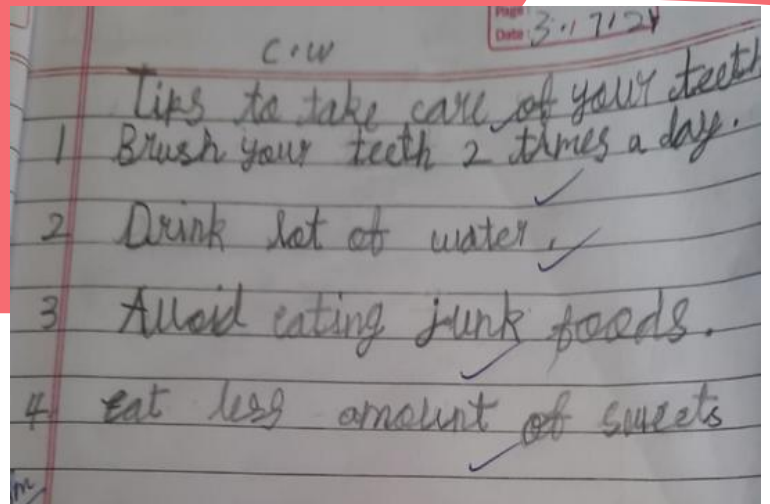 Page
Date 3.17.24
C.W
Tips to take care of your teeth
1 Brush your teeth 2 times a day.
2 Drink lot of water.
3 Avoid eating junk foods.
4 eat less amount of sweets